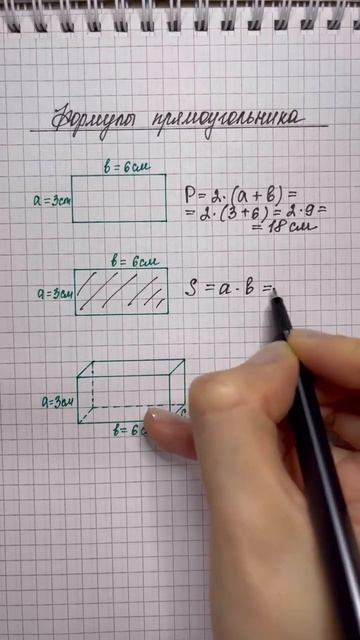 Формулы прямоугольника
в = 6см
а = 3см
P = 2·(а + в) =
= 2·(3+6) = 2·9 =
= 18 см
в = 6см
а = 3см
S = а · в =
а = 3см
в = 6с